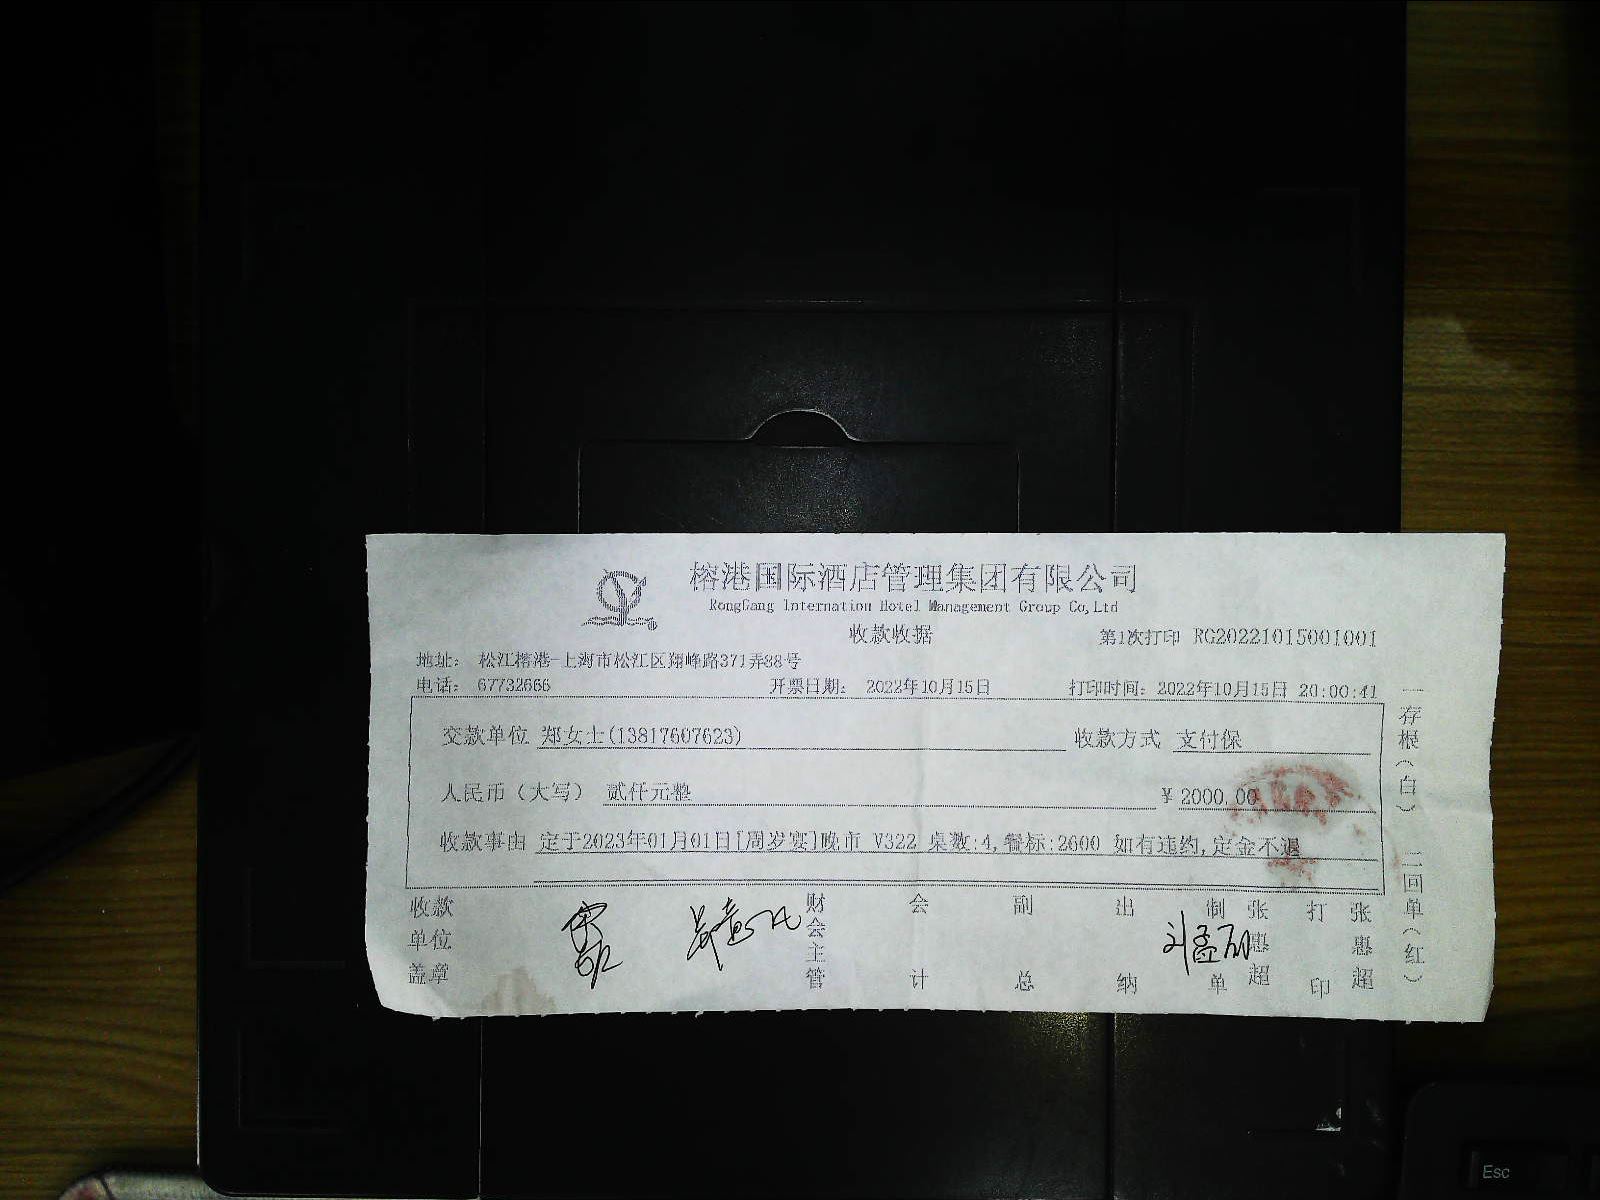 榕港国际酒店管理集团有限公司
RongGang Internation Hotel Management Group Co,Ltd
收款收据
第1次打印 RG20221015001001
地址： 松江榕港-上海市松江区翔峰路371弄88号
电话： 67732666 开票日期： 2022年10月15日 打印时间：2022年10月15日 20:00:41
交款单位 郑女士(13817607623) 收款方式 支付保
人民币（大写） 贰仟元整 ￥2000.00
收款事由 定于2023年01月01日[周岁宴]晚市 V322 桌数:4,餐标:2600 如有违约,定金不退
收款单位盖章
财会主管
会计
副总
出纳
制单 张惠超
打印 张惠超
一存根（白） 二回单（红）
Esc